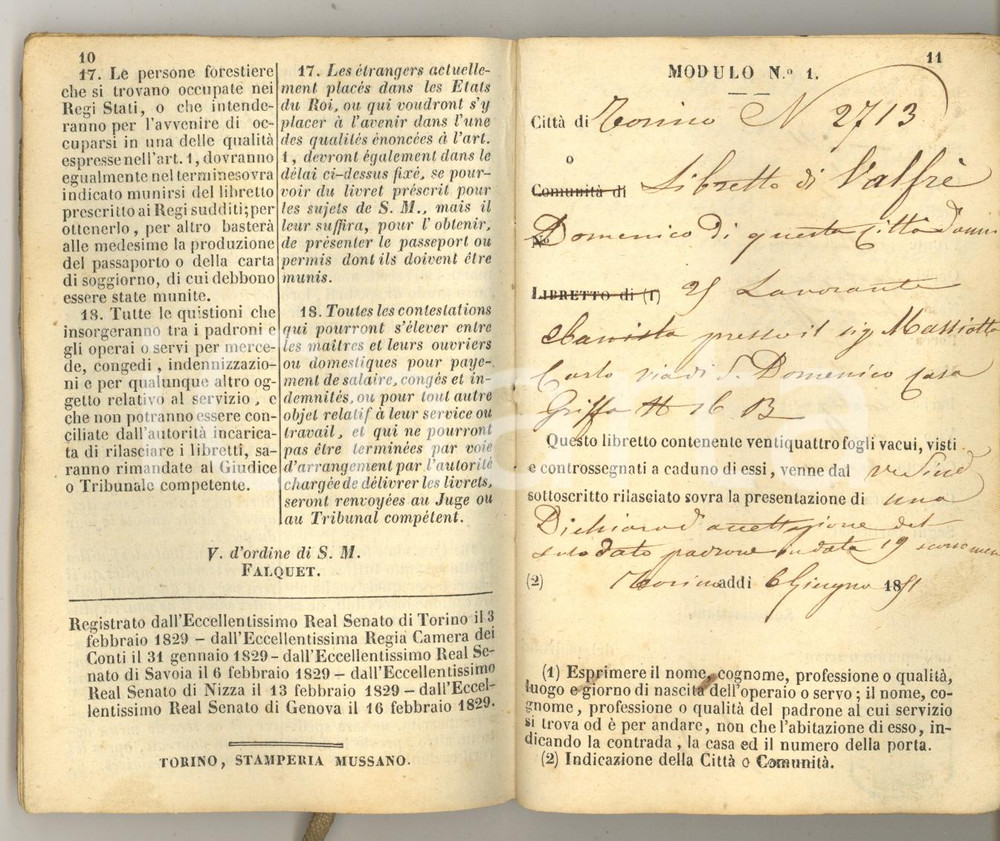 10
17. Le persone forestiere
che si trovano occupate nei
Regi Stati, o che intende-
ranno per l'avvenire di oc-
cuparsi in una delle qualità
espresse nell'art. 1, dovranno
egualmente nel termine sovra
indicato munirsi del libretto
prescritto ai Regi sudditi; per
ottenerlo, per altro basterà
alle medesime la produzione
del passaporto o della carta
di soggiorno, di cui debbono
essere state munite.
18. Tutte le quistioni che
insorgeranno tra i padroni e
gli operai o servi per merce-
de, congedi, indennizzazio-
ni e per qualunque altro og-
getto relativo al servizio, e
che non potranno essere con-
ciliate dall'autorità incarica-
ta di rilasciare i libretti, sa-
ranno rimandate al Giudice
o Tribunale competente.
17. Les étrangers actuelle-
ment placés dans les Etats
du Roi, ou qui voudront s'y
placer à l'avenir dans l'une
des qualités énoncées à l'art.
1, devront également dans le
délai ci-dessus fixé, se pour-
voir du livret préscrit pour
les sujets de S. M., mais il
leur suffira, pour l'obtenir,
de présenter le passeport ou
permis dont ils doivent être
munis.
18. Toutes les contestations
qui pourront s'élever entre
les maîtres et leurs ouvriers
ou domestiques pour paye-
ment de salaire, congés et in-
demnités, ou pour tout autre
objet relatif à leur service ou
travail, et qui ne pourront
pas être terminées par voie
d'arrangement par l'autorité
chargée de délivrer les livrets,
seront renvoyées au Juge ou
au Tribunal compétent.
V. d'ordine di S. M.
FALQUET.
Registrato dall'Eccellentissimo Real Senato di Torino il 3
febbraio 1829 – dall'Eccellentissima Regia Camera dei
Conti il 31 gennaio 1829 – dall'Eccellentissimo Real Se-
nato di Savoia il 6 febbraio 1829 – dall'Eccellentissimo
Real Senato di Nizza il 13 febbraio 1829 – dall'Eccel-
lentissimo Real Senato di Genova il 16 febbraio 1829.
TORINO, STAMPERIA MUSSANO.
11
MODULO N.º 1.
Città di Torino N 2713
o
Comunità di Libretto di Valfrè
N.º Domenico di questa Città d'anni
LIBRETTO di (1) 25 Lavorante
presso il sig Massiotto
Carlo via di S. Domenico casa
Griffa N 16 B
Questo libretto contenente ventiquattro fogli vacui, visti
e controssegnati a caduno di essi, venne dal V. Sind
sottoscritto rilasciato sovra la presentazione di una
Dichiaraz d'accettazione del
padrone in data 19
(2) Torino addì 6 Giugno 1851
(1) Esprimere il nome, cognome, professione o qualità,
luogo e giorno di nascita dell'operaio o servo; il nome, co-
gnome, professione o qualità del padrone al cui servizio
si trova od è per andare, non che l'abitazione di esso, in-
dicando la contrada, la casa ed il numero della porta.
(2) Indicazione della Città o Comunità.